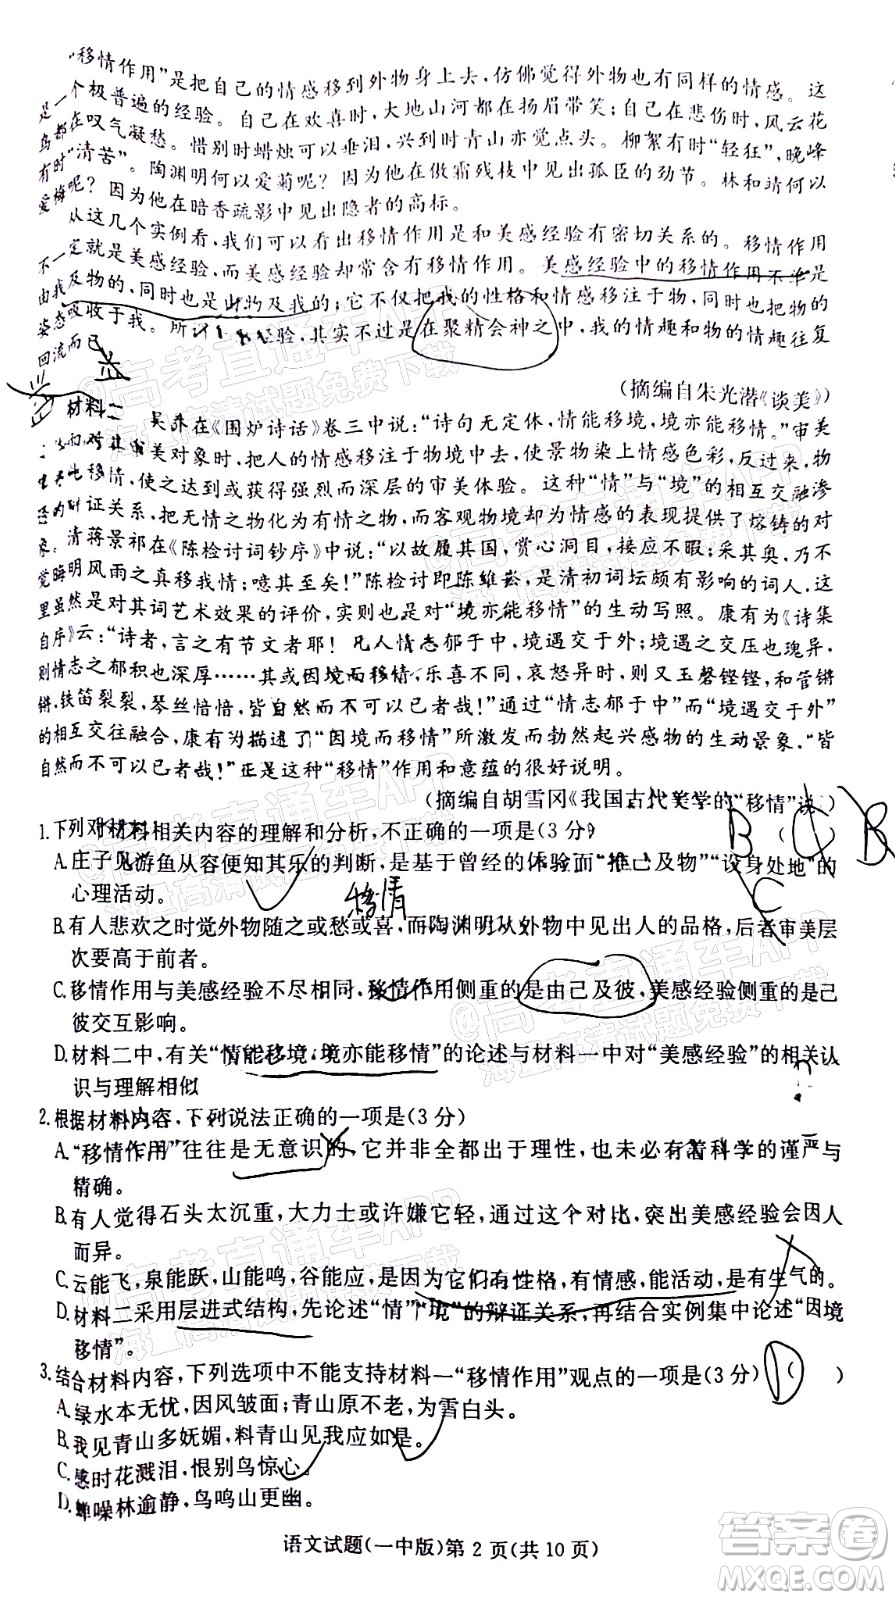 “移情作用”是把自己的情感移到外物身上去，仿佛觉得外物也有同样的情感。这
是一个极普遍的经验。自己在欢喜时，大地山河都在扬眉带笑；自己在悲伤时，风云花
鸟都在叹气凝愁。惜别时蜡烛可以垂泪，兴到时青山亦觉点头。柳絮有时“轻狂”，晚峰
有时“清苦”。陶渊明何以爱菊呢？因为他在傲霜残枝中见出孤臣的劲节。林和靖何以
爱梅呢？因为他在暗香疏影中见出隐者的高标。
从这几个实例看，我们可以看出移情作用是和美感经验有密切关系的。移情作用
不一定就是美感经验，而美感经验却常含有移情作用。美感经验中的移情作用不单是
由我及物的，同时也是由物及我的；它不仅把我的性格和情感移注于物，同时也把物的
姿态吸收于我。所谓美感经验，其实不过是在聚精会神之中，我的情趣和物的情趣往复
回流而已
（摘编自朱光潜《谈美》）
材料二 吴乔在《围炉诗话》卷三中说：“诗句无定体，情能移境，境亦能移情。”审美
面对其审美对象时，把人的情感移注于物境中去，使景物染上情感色彩，反过来，物
移情，使之获得强烈而深层的审美体验。这种“情”与“境”的相互交融渗
的辩证关系，使无情之物化为有情之物，而客观物境却为情感的表现提供了熔铸的对
象。清蒋景祁在《陈检讨词钞序》中说：“以故履其国，赏心洞目，接应不暇；采其奥，乃不
觉晦明风雨之真移我情，噫其至矣！”陈检讨即陈维崧，是清初词坛颇有影响的词人，这
里虽然是对其词艺术效果的评价，实则也是对“境亦能移情”的生动写照。康有为《诗集
自序》云：“诗者，言之有节文者耶！凡人情志郁于中，境遇交于外，境遇之交压也瑰异，
则情志之郁积也深厚……其或因境而移情，乐喜不同，哀怒异时，则又玉磬铿铿，和管锵
锵，铁笛裂裂，琴丝愔愔，皆自然而不可以已者哉！”通过“情志郁于中”而“境遇交于外”
的相互交往融合，康有为描述了“因境而移情”所激发而勃然起兴感物的生动景象，“皆
自然而不可以已者哉！”正是这种“移情”作用和意蕴的很好说明。
（摘编自胡雪冈《我国古代美学的“移情”说》）
1.下列对材料相关内容的理解和分析，不正确的一项是（3 分） B C B
A.庄子见游鱼从容便知其乐的判断，是基于曾经的体验而“推己及物”“设身处地”的
心理活动。 移情 C
B.有人悲欢之时觉外物随之或愁或喜，而陶渊明从外物中见出人的品格，后者审美层
次要高于前者。
C.移情作用与美感经验不尽相同，移情作用侧重的是由己及彼，美感经验侧重的是己
彼交互影响。
D.材料二中，有关“情能移境，境亦能移情”的论述与材料一中对“美感经验”的相关认
识与理解相似
2.根据材料内容，下列说法正确的一项是（3 分） ?
A.“移情作用”往往是无意识的，它并非全都出于理性，也未必有着科学的谨严与
精确。
B.有人觉得石头太沉重，大力士或许嫌它轻，通过这个对比，突出美感经验会因人
而异。
C.云能飞，泉能跃，山能鸣，谷能应，是因为它们有性格，有情感，能活动，是有生气的。
D.材料二采用层进式结构，先论述“情”“境”的辩证关系，再结合实例集中论述“因境
移情”。
3.结合材料内容，下列选项中不能支持材料一“移情作用”观点的一项是（3 分） D （ ）
A.绿水本无忧，因风皱面；青山原不老，为雪白头。
B.我见青山多妩媚，料青山见我应如是。
C.感时花溅泪，恨别鸟惊心。
D.蝉噪林逾静，鸟鸣山更幽。
语文试题（一中版）第 2 页（共 10 页）
@高考直通车APP
海量高清试题免费下载
答案卷
MXQE.COM